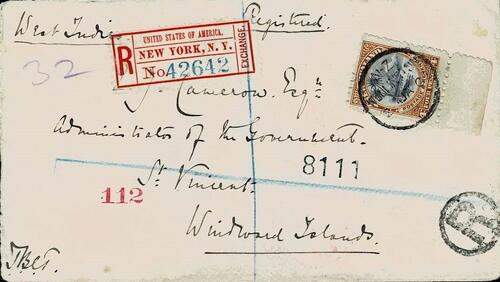 West Indi
Registered.
UNITED STATES OF AMERICA.
R
NEW YORK, N. Y.
No 42642
EXCHANGE.
32
J. Cameron Esqre
Administrator of the Government.
8111
St Vincent
112
Windward Islands.
R